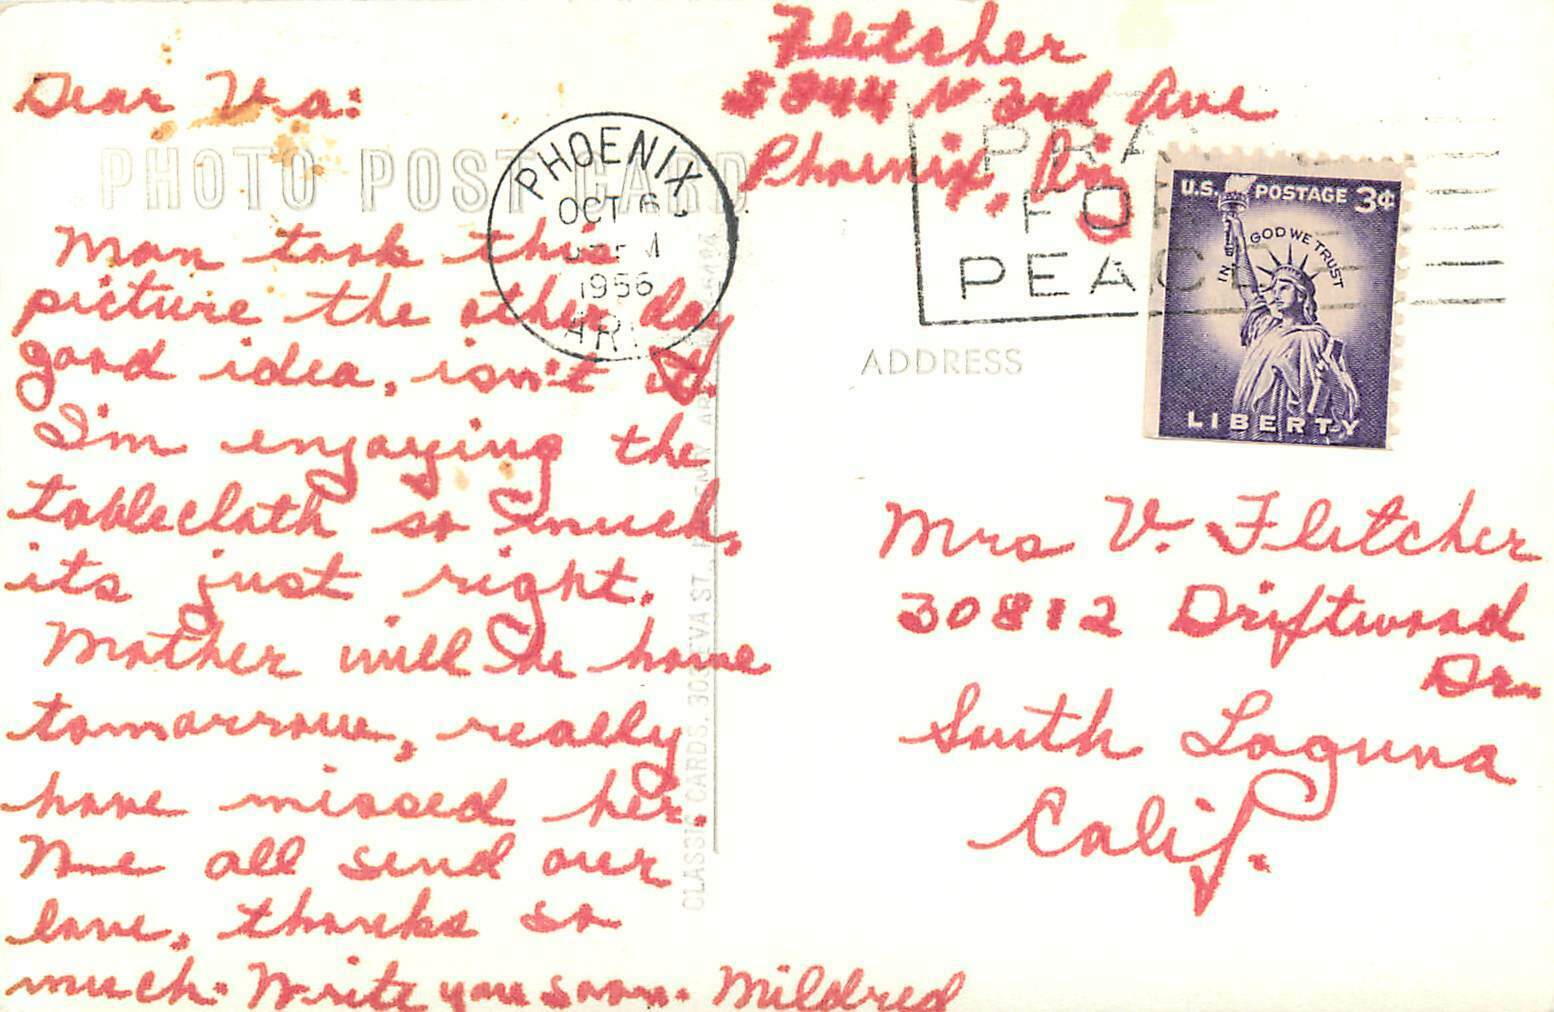 Fletcher
5844 N 3rd Ave
Phoenix, Ariz
Dear Via:
PHOTO POST CARD
PHOENIX
OCT 6
1956
ARI
PRAY
FOR
PEACE
U.S. POSTAGE 3¢
IN GOD WE TRUST
LIBERTY
ADDRESS
Man took this
picture the other day
good idea, isn't it.
I'm enjoying the
tablecloth so much,
its just right.
Mother will be home
tomorrow, really
have missed her.
We all send our
love, thanks so
much. Write you soon. Mildred
Mrs V. Fletcher
30812 Driftwood
Dr.
South Laguna
Calif.
CLASSIC CARDS, 303 EVA ST.,